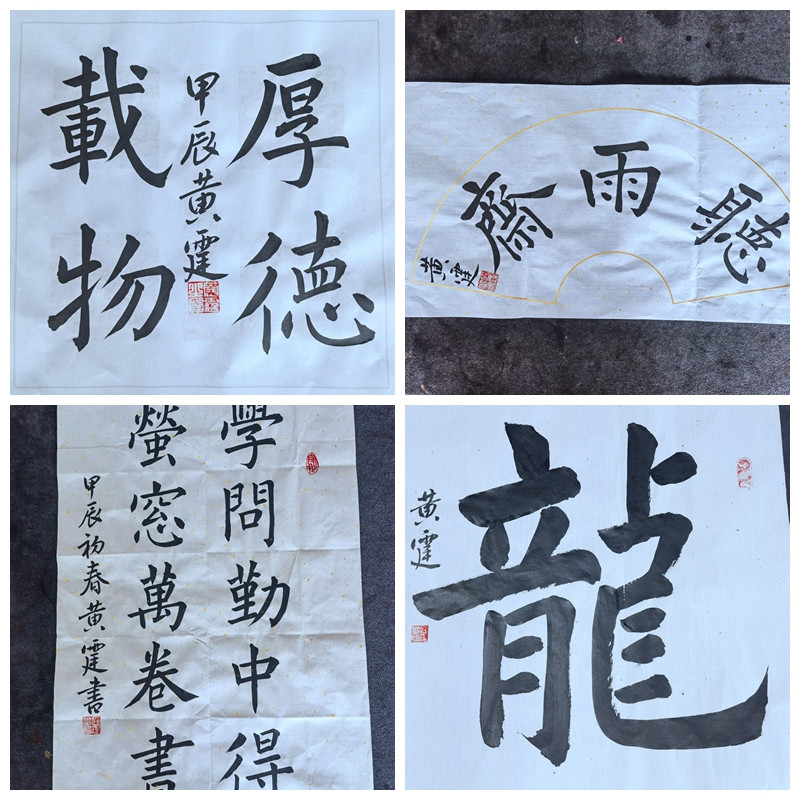 厚德
載物
甲辰黄霆
聽雨齋
黄霆
學問勤中得
螢窓萬卷書
甲辰初春黄霆書
龍
黄霆